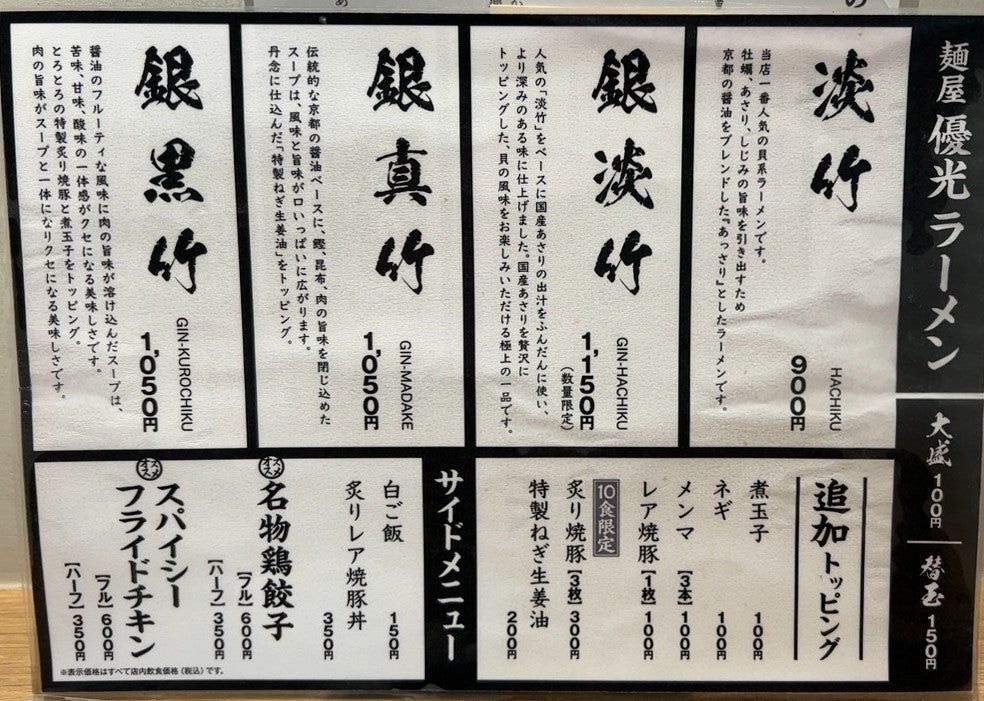 麺屋 優光 ラーメン
大盛 100円
替玉 150円
淡竹
HACHIKU
900円
当店一番人気の貝系ラーメンです。
牡蠣、あさり、しじみの旨味を引き出すため
京都の醤油をブレンドした『あっさり』としたラーメンです。
銀淡竹
GIN-HACHIKU
1,150円
(数量限定)
人気の「淡竹」をベースに国産あさりの出汁をふんだんに使い、
より深みのある味に仕上げました。国産あさりを贅沢に
トッピングした、貝の風味をお楽しみいただける極上の一品です。
銀真竹
GIN-MADAKE
1,050円
伝統的な京都の醤油ベースに、鰹、昆布、肉の旨味を閉じ込めた
スープは、風味と旨味が口いっぱいに広がります。
丹念に仕込んだ「特製ねぎ生姜油」をトッピング。
銀黒竹
GIN-KUROCHIKU
1,050円
醤油のフルーティな風味に肉の旨味が溶け込んだスープは、
苦味、甘味、酸味の一体感がクセになる美味しさです。
とろとろの特製炙り焼豚と煮玉子をトッピング。
肉の旨味がスープと一体になりクセになる美味しさです。
追加トッピング
煮玉子 100円
ネギ 100円
メンマ【3本】100円
レア焼豚【1枚】100円
10食限定
炙り焼豚【3枚】300円
特製ねぎ生姜油 200円
サイドメニュー
白ご飯 150円
炙りレア焼豚丼 350円
オススメ
名物鶏餃子
【フル】600円
【ハーフ】350円
オススメ
スパイシー
フライドチキン
【フル】600円
【ハーフ】350円
※表示価格はすべて店内飲食価格(税込)です。